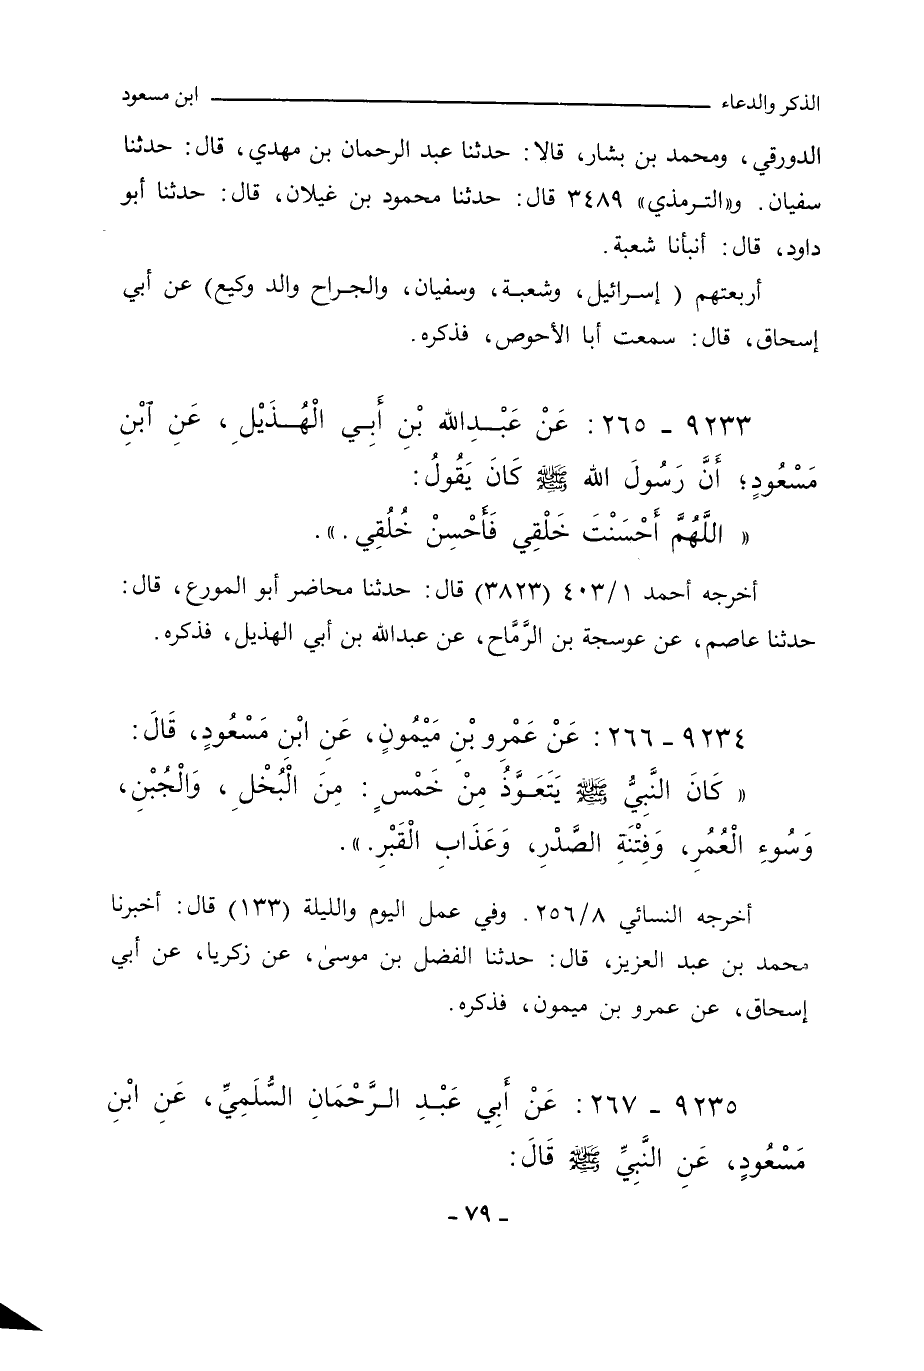 الذكر والدعاء ــــــــــــــــــــ ابن مسعود
الدورقي، ومحمد بن بشار، قالا: حدثنا عبد الرحمان بن مهدي، قال: حدثنا
سفيان. و«الترمذي» ٣٤٨٩ قال: حدثنا محمود بن غيلان، قال: حدثنا أبو
داود، قال: أنبأنا شعبة.
أربعتهم ( إسرائيل، وشعبة، وسفيان، والجراح والد وكيع) عن أبي
إسحاق، قال: سمعت أبا الأحوص، فذكره.
٩٢٣٣ ـ ٢٦٥: عَنْ عَبْدِالله بْنِ أَبِي الْهُذَيْلِ، عَنِ ٱبْنِ
مَسْعُودٍ؛ أَنَّ رَسُولَ الله ﷺ كَانَ يَقُولُ:
« اللَّهُمَّ أَحْسَنْتَ خَلْقِي فَأَحْسِنْ خُلُقِي .».
أخرجه أحمد ٤٠٣/١ (٣٨٢٣) قال: حدثنا محاضر أبو المورع، قال:
حدثنا عاصم، عن عوسجة بن الرَّمَّاح، عن عبدالله بن أبي الهذيل، فذكره.
٩٢٣٤ ـ ٢٦٦: عَنْ عَمْرِو بْنِ مَيْمُونٍ، عَنِ ابْنِ مَسْعُودٍ، قَالَ:
« كَانَ النَّبِيُّ ﷺ يَتَعَوَّذُ مِنْ خَمْسٍ: مِنَ الْبُخْلِ، وَالْجُبْنِ،
وَسُوءِ الْعُمُرِ، وَفِتْنَةِ الصَّدْرِ، وَعَذَابِ الْقَبْرِ.».
أخرجه النسائي ٢٥٦/٨. وفي عمل اليوم والليلة (١٣٣) قال: أخبرنا
محمد بن عبد العزيز، قال: حدثنا الفضل بن موسىٰ، عن زكريا، عن أبي
إسحاق، عن عمرو بن ميمون، فذكره.
٩٢٣٥ ـ ٢٦٧: عَنْ أَبِي عَبْدِ الرَّحْمَانِ السُّلَمِيِّ، عَنِ ابْنِ
مَسْعُودٍ، عَنِ النَّبِيِّ ﷺ قَالَ:
ـ ٧٩ ـ